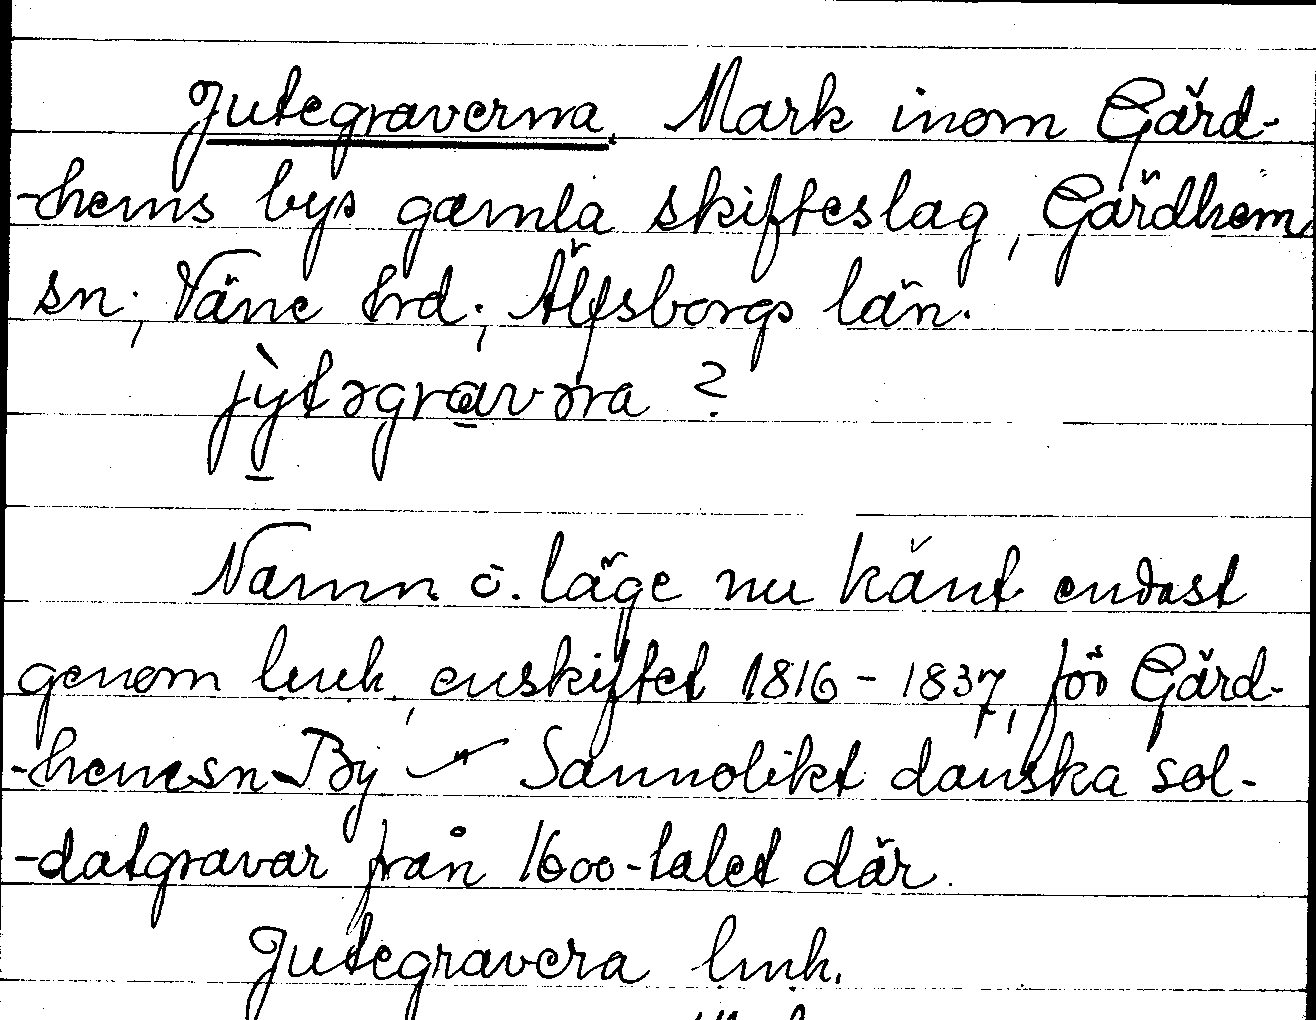 Jutegraverna. Mark inom Gärd-
-hems bys gamla skifteslag, Gärdhem
sn; Väne hrd; Älfsborgs län.
jỳtəgravəra ?
Namn o. läge nu känt endast
genom lmh, enskiftet 1816-1837, för Gärd-
-hemsn By Sannolikt danska sol-
-datgravar från 1600-talet där.
Jutegravera lmh.